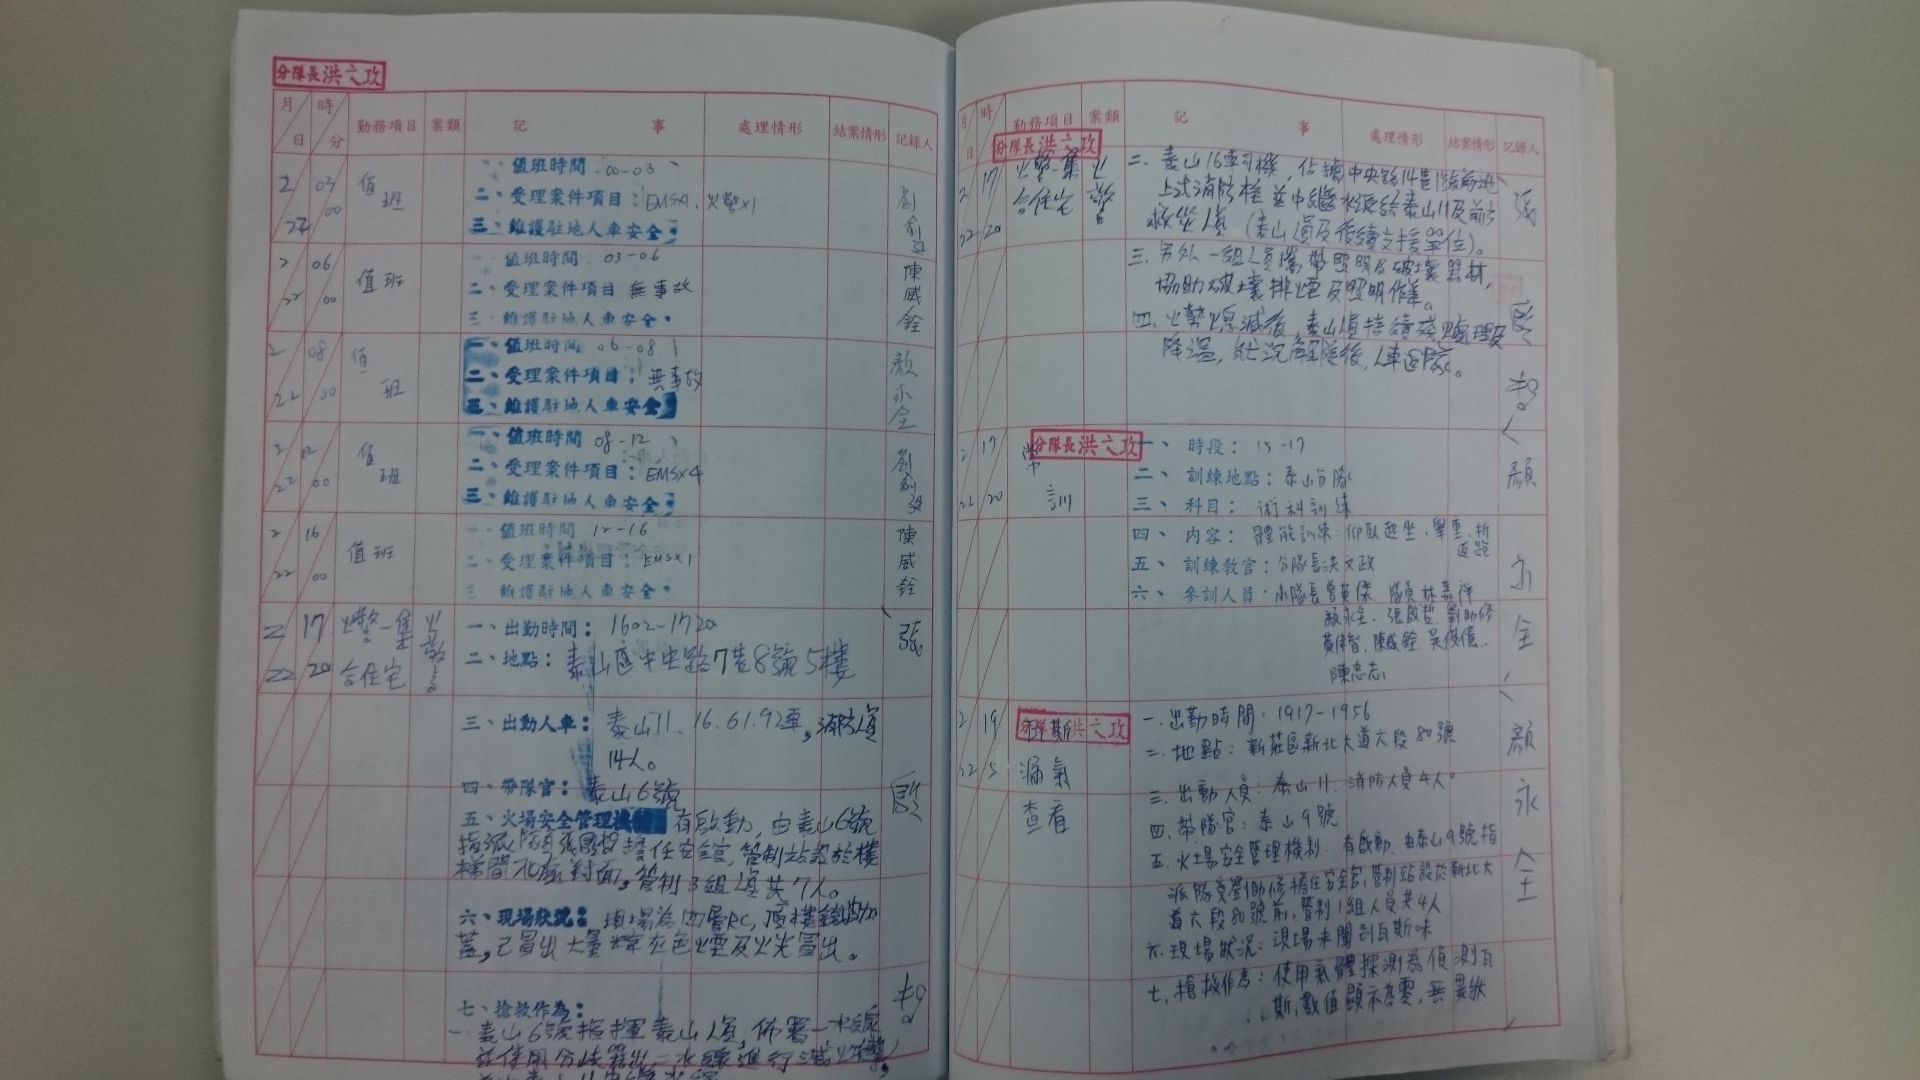 分隊長洪文政
月 日 時 分 勤務項目 案類 記 事 處理情形 結案情形 記錄人
2 22 03 00 值班
值班時間 00-03
二、受理案件項目：EMSX1、火警X1
三、維護駐地人車安全。
2 22 06 00 值班
值班時間 03-06
二、受理案件項目 無事故
三、維護駐地人車安全。
陳威銓
2 22 08 00 值班
一、值班時間 06-08
二、受理案件項目：無事故
三、維護駐地人車安全。
顏永全
2 22 12 00 值班
一、值班時間 08-12
二、受理案件項目：EMSX4
三、維護駐地人車安全。
2 22 16 00 值班
一、值班時間 12-16
二、受理案件項目：EMSX1
三、維護駐地人車安全。
陳威銓
2 22 17 20 火警-集合住宅 火警
一、出勤時間：1602-1720
二、地點：泰山區中央路7巷8號5樓
三、出動人車：泰山11.16.61.92車，消防人員
14人。
四、帶隊官：泰山6號
五、火場安全管理機制 有啟動，由泰山6號
指派隊員張擔任安全官，管制站設於樓
梯間對面，管制3組人員共7人。
六、現場狀況：現場為四層RC，頂樓鐵皮加
蓋，已冒出大量灰色煙及火光冒出。
七、搶救作為：
一、泰山6號指揮泰山人員，佈署一水線
並使用分岐器出二水線進行滅火攻擊，
張啟哲
月 日 時 勤務項目 案類 記 事 處理情形 結案情形 記錄人
分隊長洪文政
2 22 17 20 火警-集合住宅 火警
二、泰山16車司機，佔據中央路14巷前地
上式消防栓並中繼水源給泰山11及前方
救災人員（泰山人員及後續支援單位）。
三、另外一組人員攜帶照明及破壞器材，
協助破壞排煙及照明作業。
四、火勢熄滅後，泰山人員持續殘火處理及
降溫，狀況解除後，人車返隊。
張啟哲
分隊長洪文政
2 22 17 20 常訓
一、時段：15-17
二、訓練地點：泰山分隊
三、科目：術科訓練
四、內容：體能訓練：仰臥起坐、舉重、折
返跑
五、訓練教官：分隊長洪文政
六、參訓人員：小隊長曾英傑、隊員林嘉祥
顏永全、張啟哲、劉助修
黃偉智、陳威銓、吳俊億、
陳忠志
顏永全
分隊長洪文政
2 22 19 5 瓦斯漏氣查看
一、出勤時間：1917-1956
二、地點：新莊區新北大道六段80號
三、出動人員：泰山11、消防人員4人。
四、帶隊官：泰山9號
五、火場安全管理機制：有啟動，由泰山9號指
派隊員劉助修擔任安全官，管制站設於新北大
道六段80號前，管制1組人員共4人
六、現場狀況：現場未聞到瓦斯味
七、搶救作為：使用氣體探測器偵測瓦
斯，數值顯示為零，無異狀
顏永全